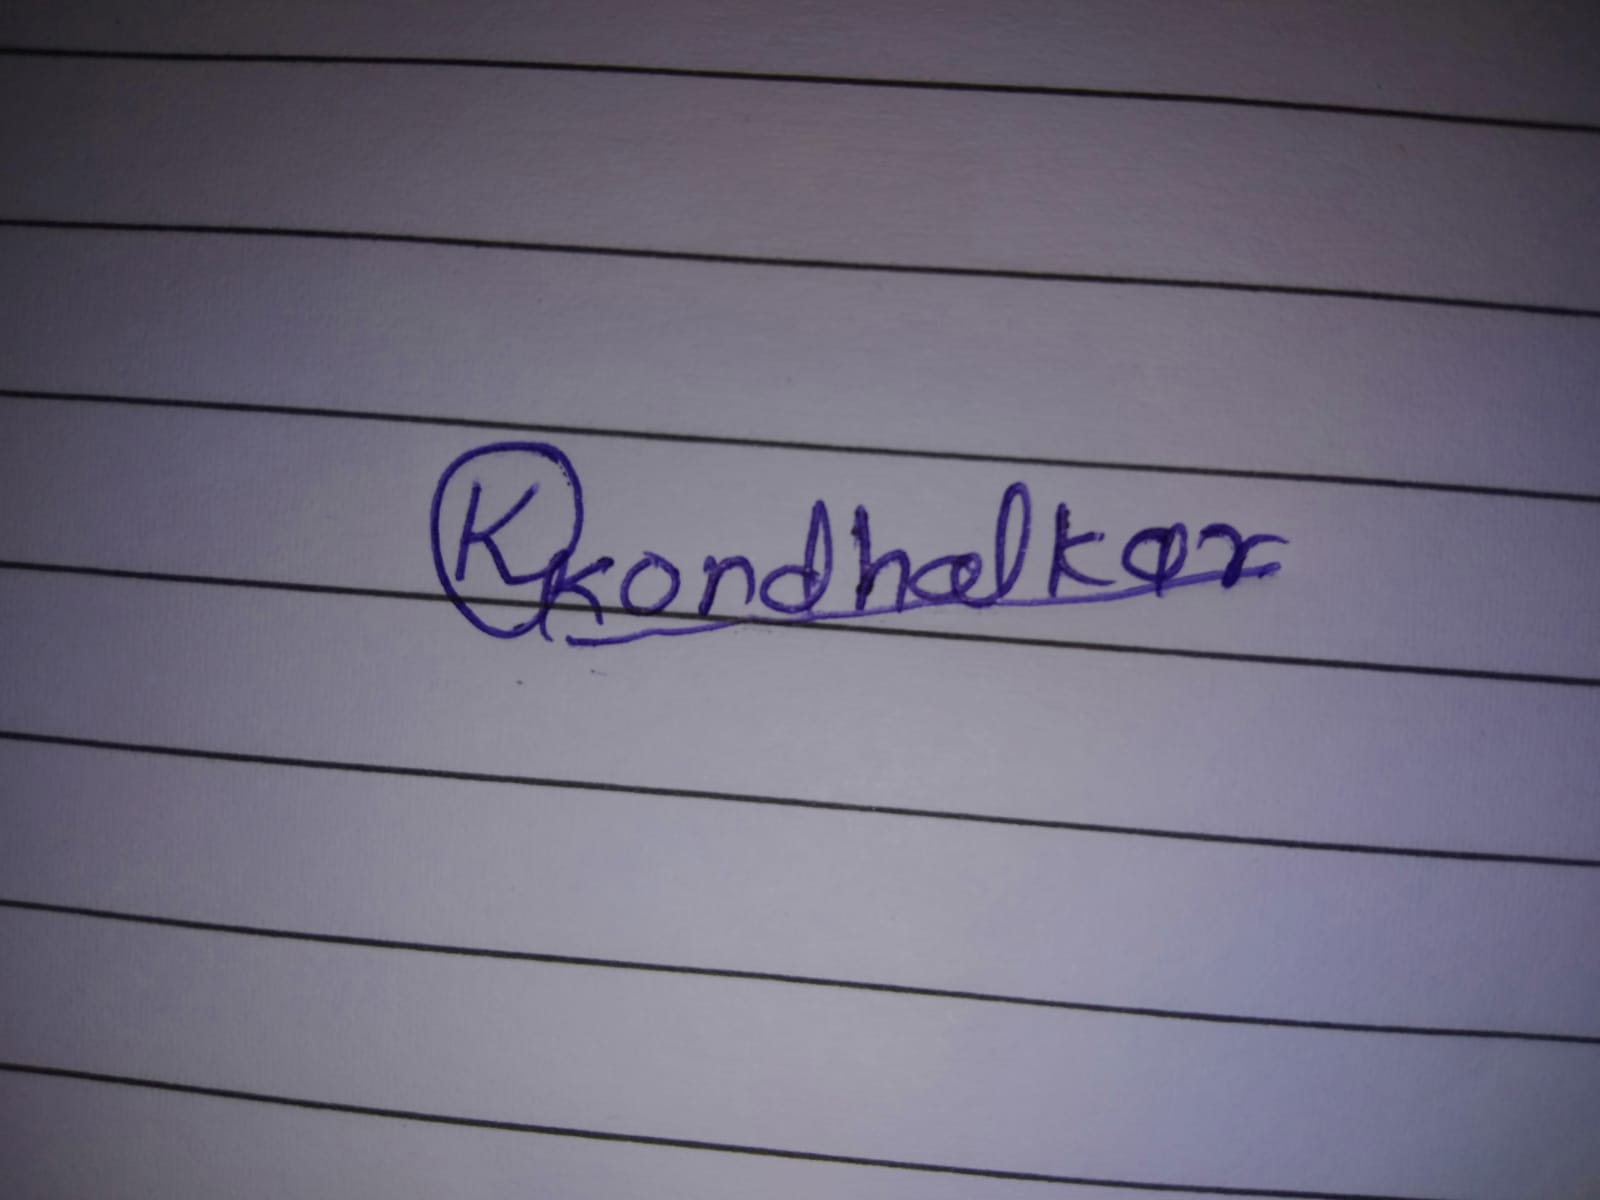 K kondhalkar